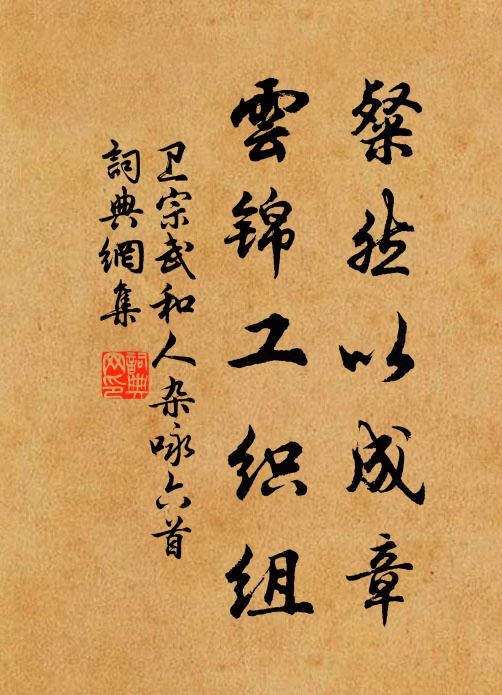 粲然以成章
雲锦工织组
卫宗武和人杂咏六首
詞典網集
詞典
网印